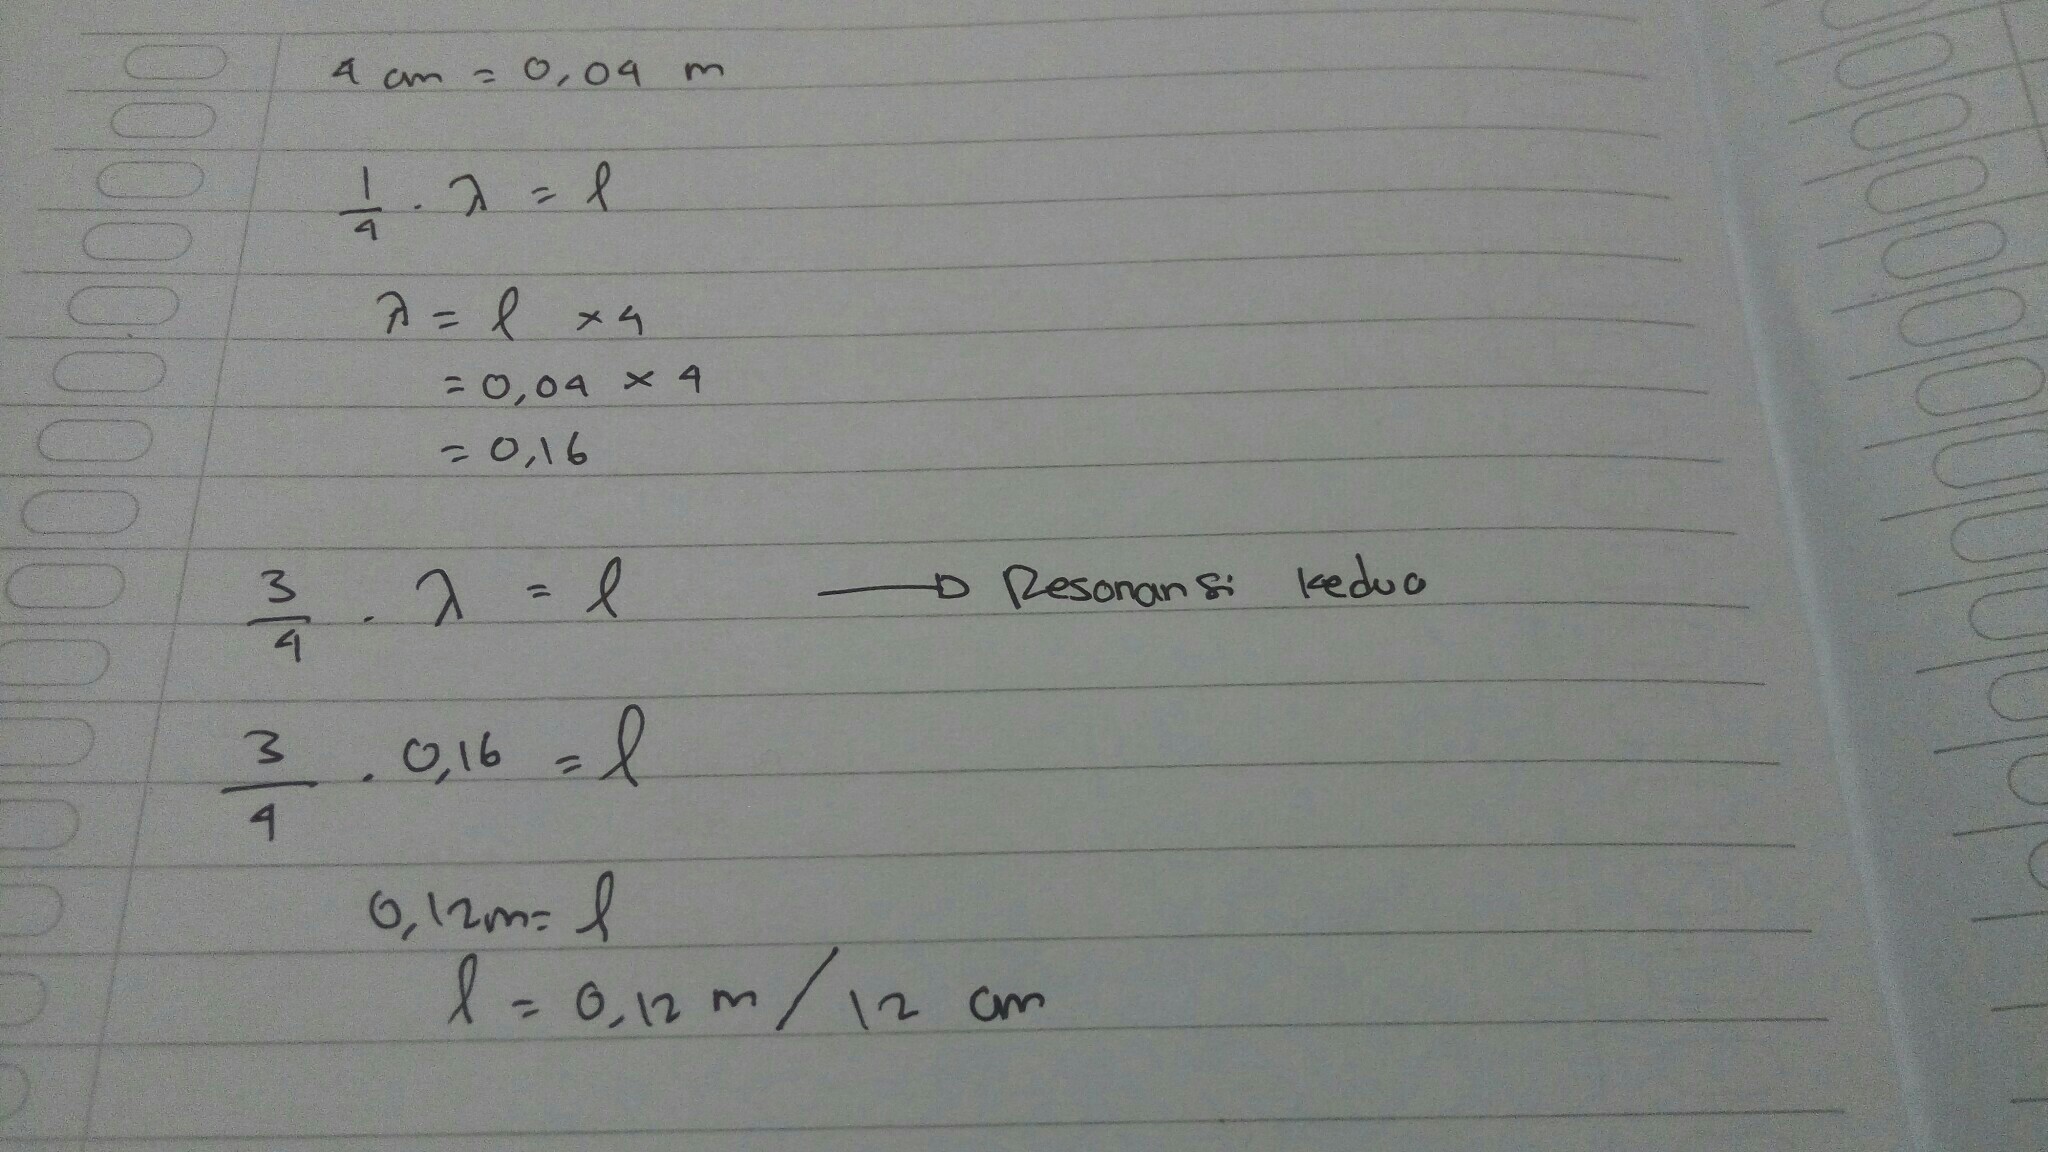 4 cm = 0,04 m
1/4 . λ = l
λ = l × 4
= 0,04 × 4
= 0,16
3/4 . λ = l → Resonansi kedua
3/4 . 0,16 = l
0,12m = l
l = 0,12 m / 12 cm